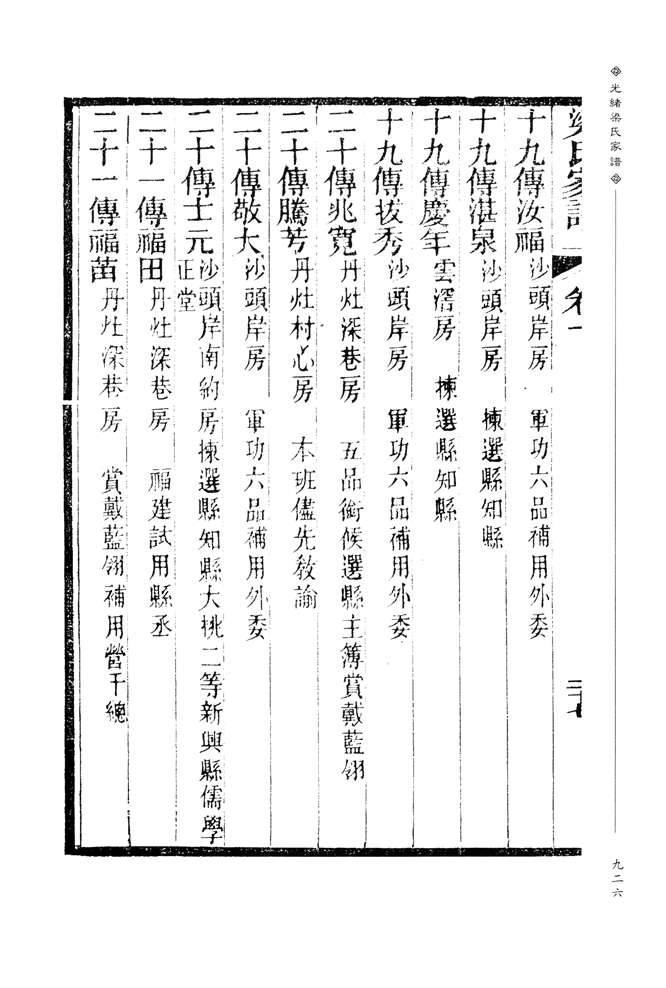 光緒梁氏家譜
九二六
梁氏家譜 卷一 三十七
十九傳汝福 沙頭岸房 軍功六品補用外委
十九傳湛泉 沙頭岸房 揀選縣知縣
十九傳慶年 雲滘房 揀選縣知縣
十九傳拔秀 沙頭岸房 軍功六品補用外委
二十傳兆寬 丹灶深巷房 五品銜候選縣主簿賞戴藍翎
二十傳騰芳 丹灶村心房 本班儘先教諭
二十傳敬大 沙頭岸房 軍功六品補用外委
二十傳士元 沙頭岸南約房揀選縣知縣大挑二等新興縣儒學
正堂
二十一傳福田 丹灶深巷房 福建試用縣丞
二十一傳福苗 丹灶深巷房 賞戴藍翎補用營千總